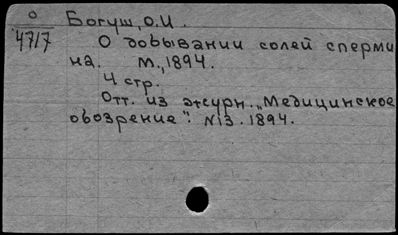 о
4717
Богуш, О.И.
О добывании солей сперми
на. М., 1894.
4 стр.
Отт. из журн. „Медицинское
обозрение": №13. 1894.